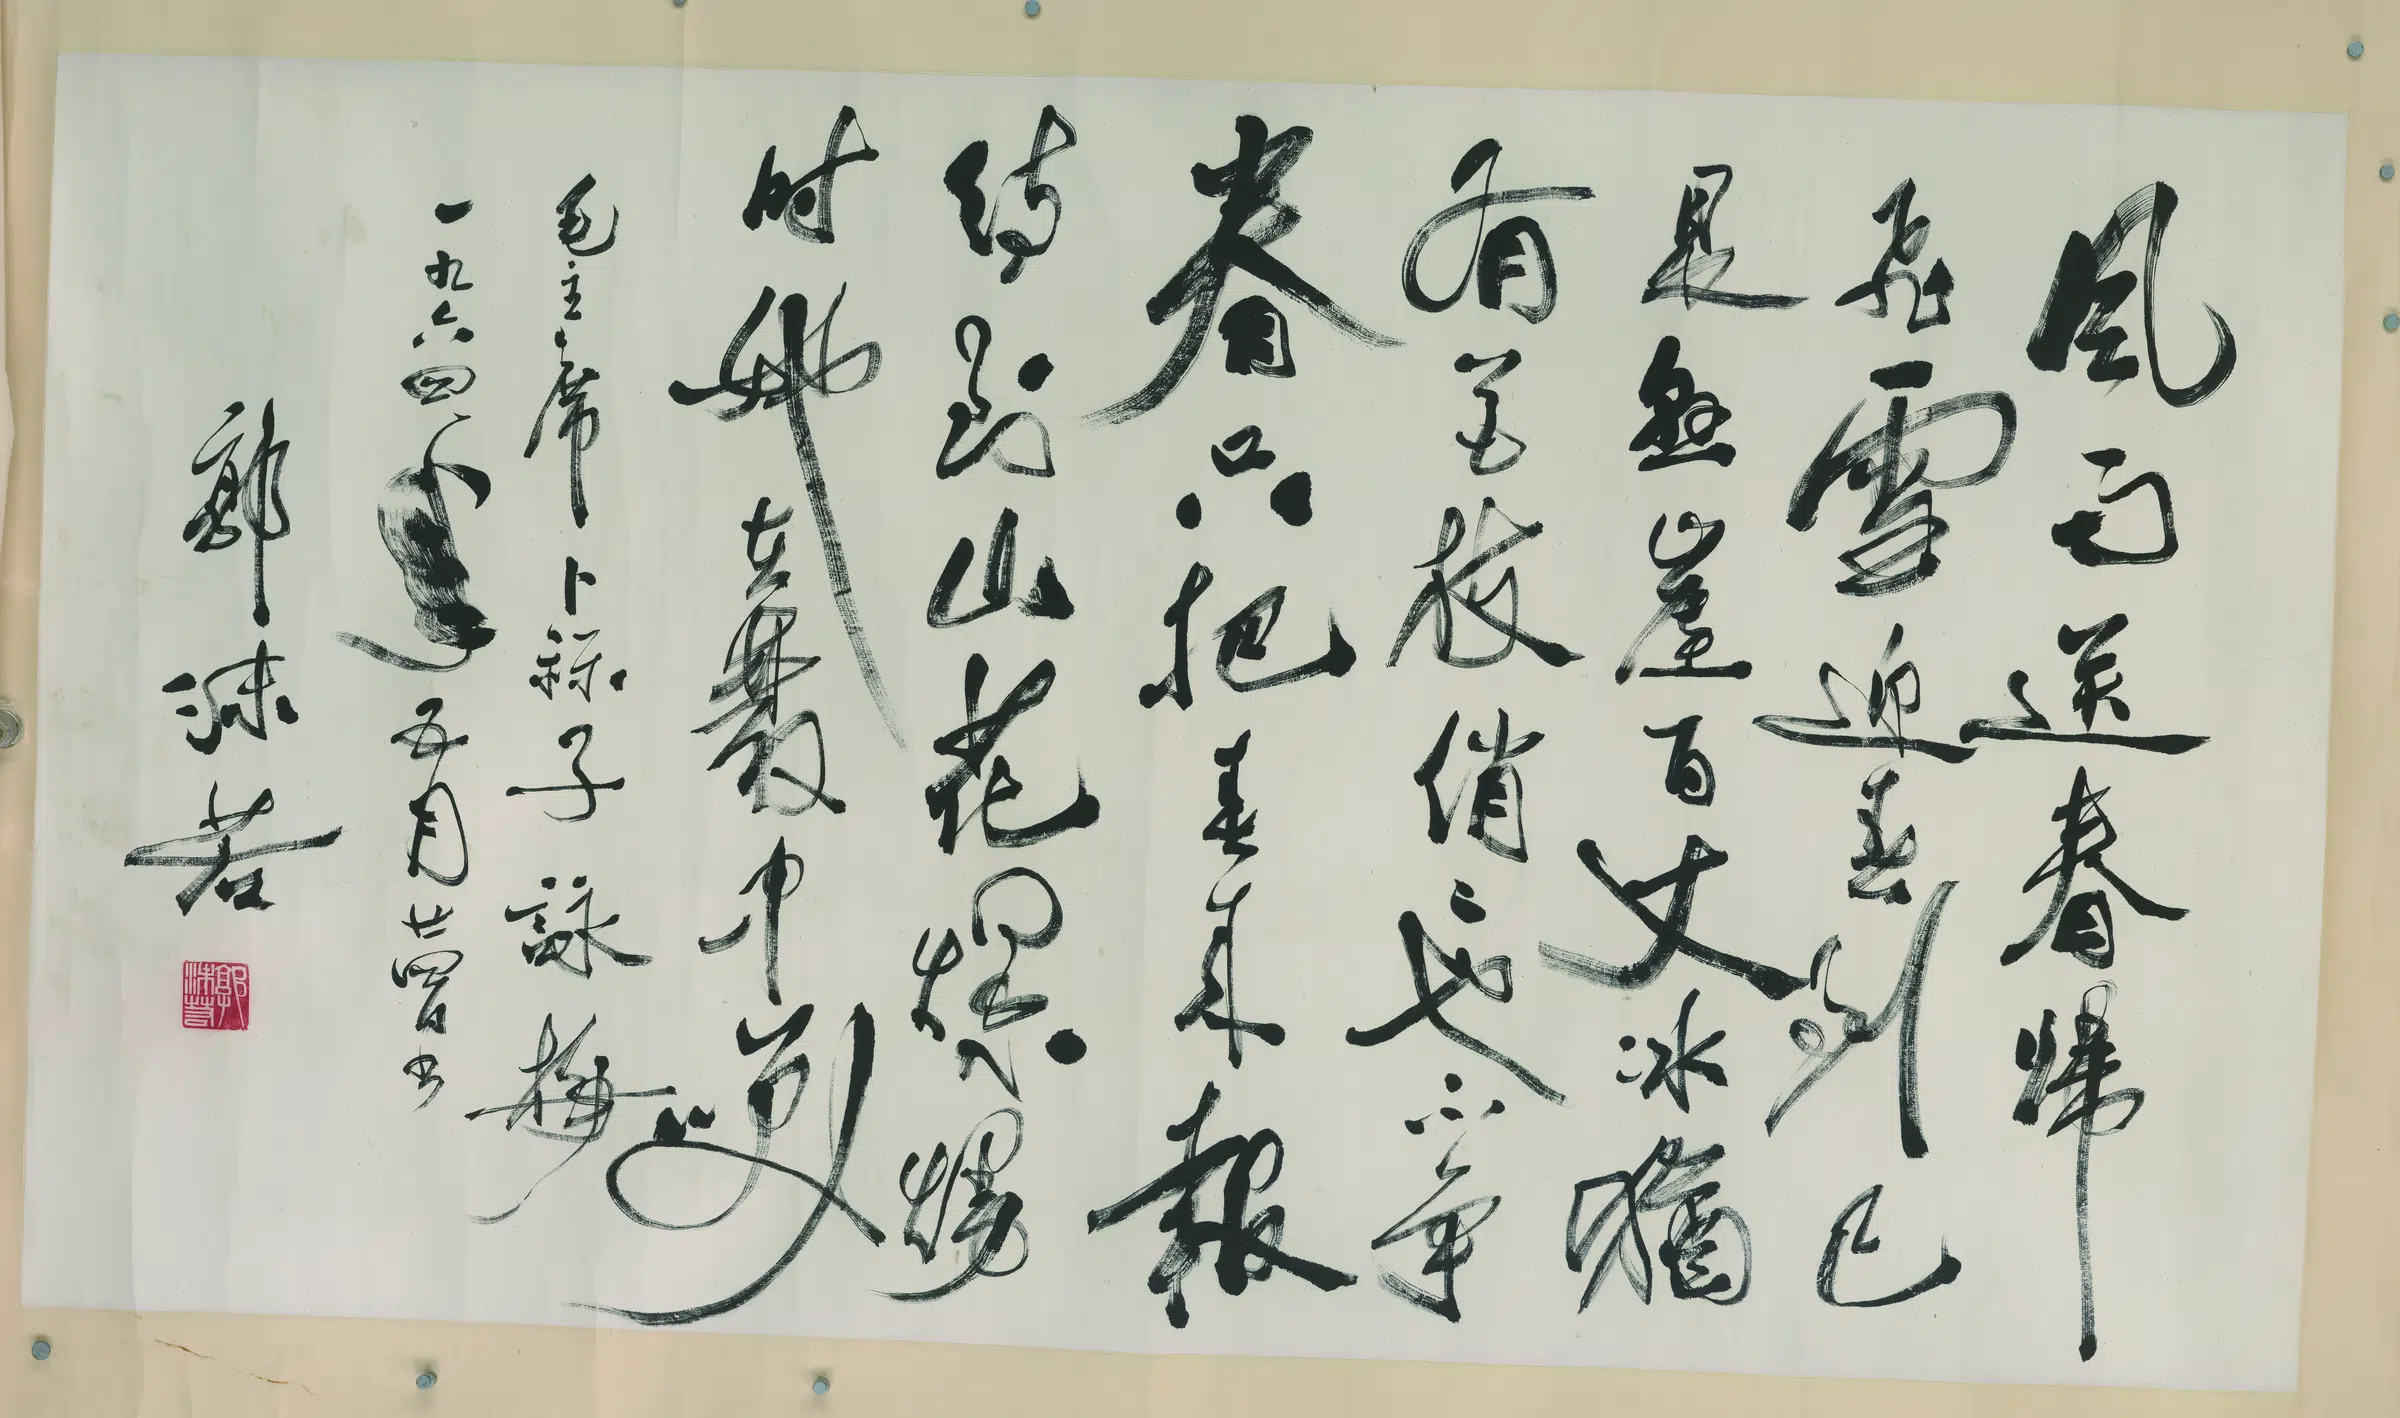 風雨送春歸
飛雪迎春到已
是懸崖百丈冰猶
有花枝俏〻也不爭
春只把春來報
待到山花爛熳
时她在叢中笑
毛主席卜祘子詠梅
一九六四年五月廿四日书
郭沫若
郭沫若